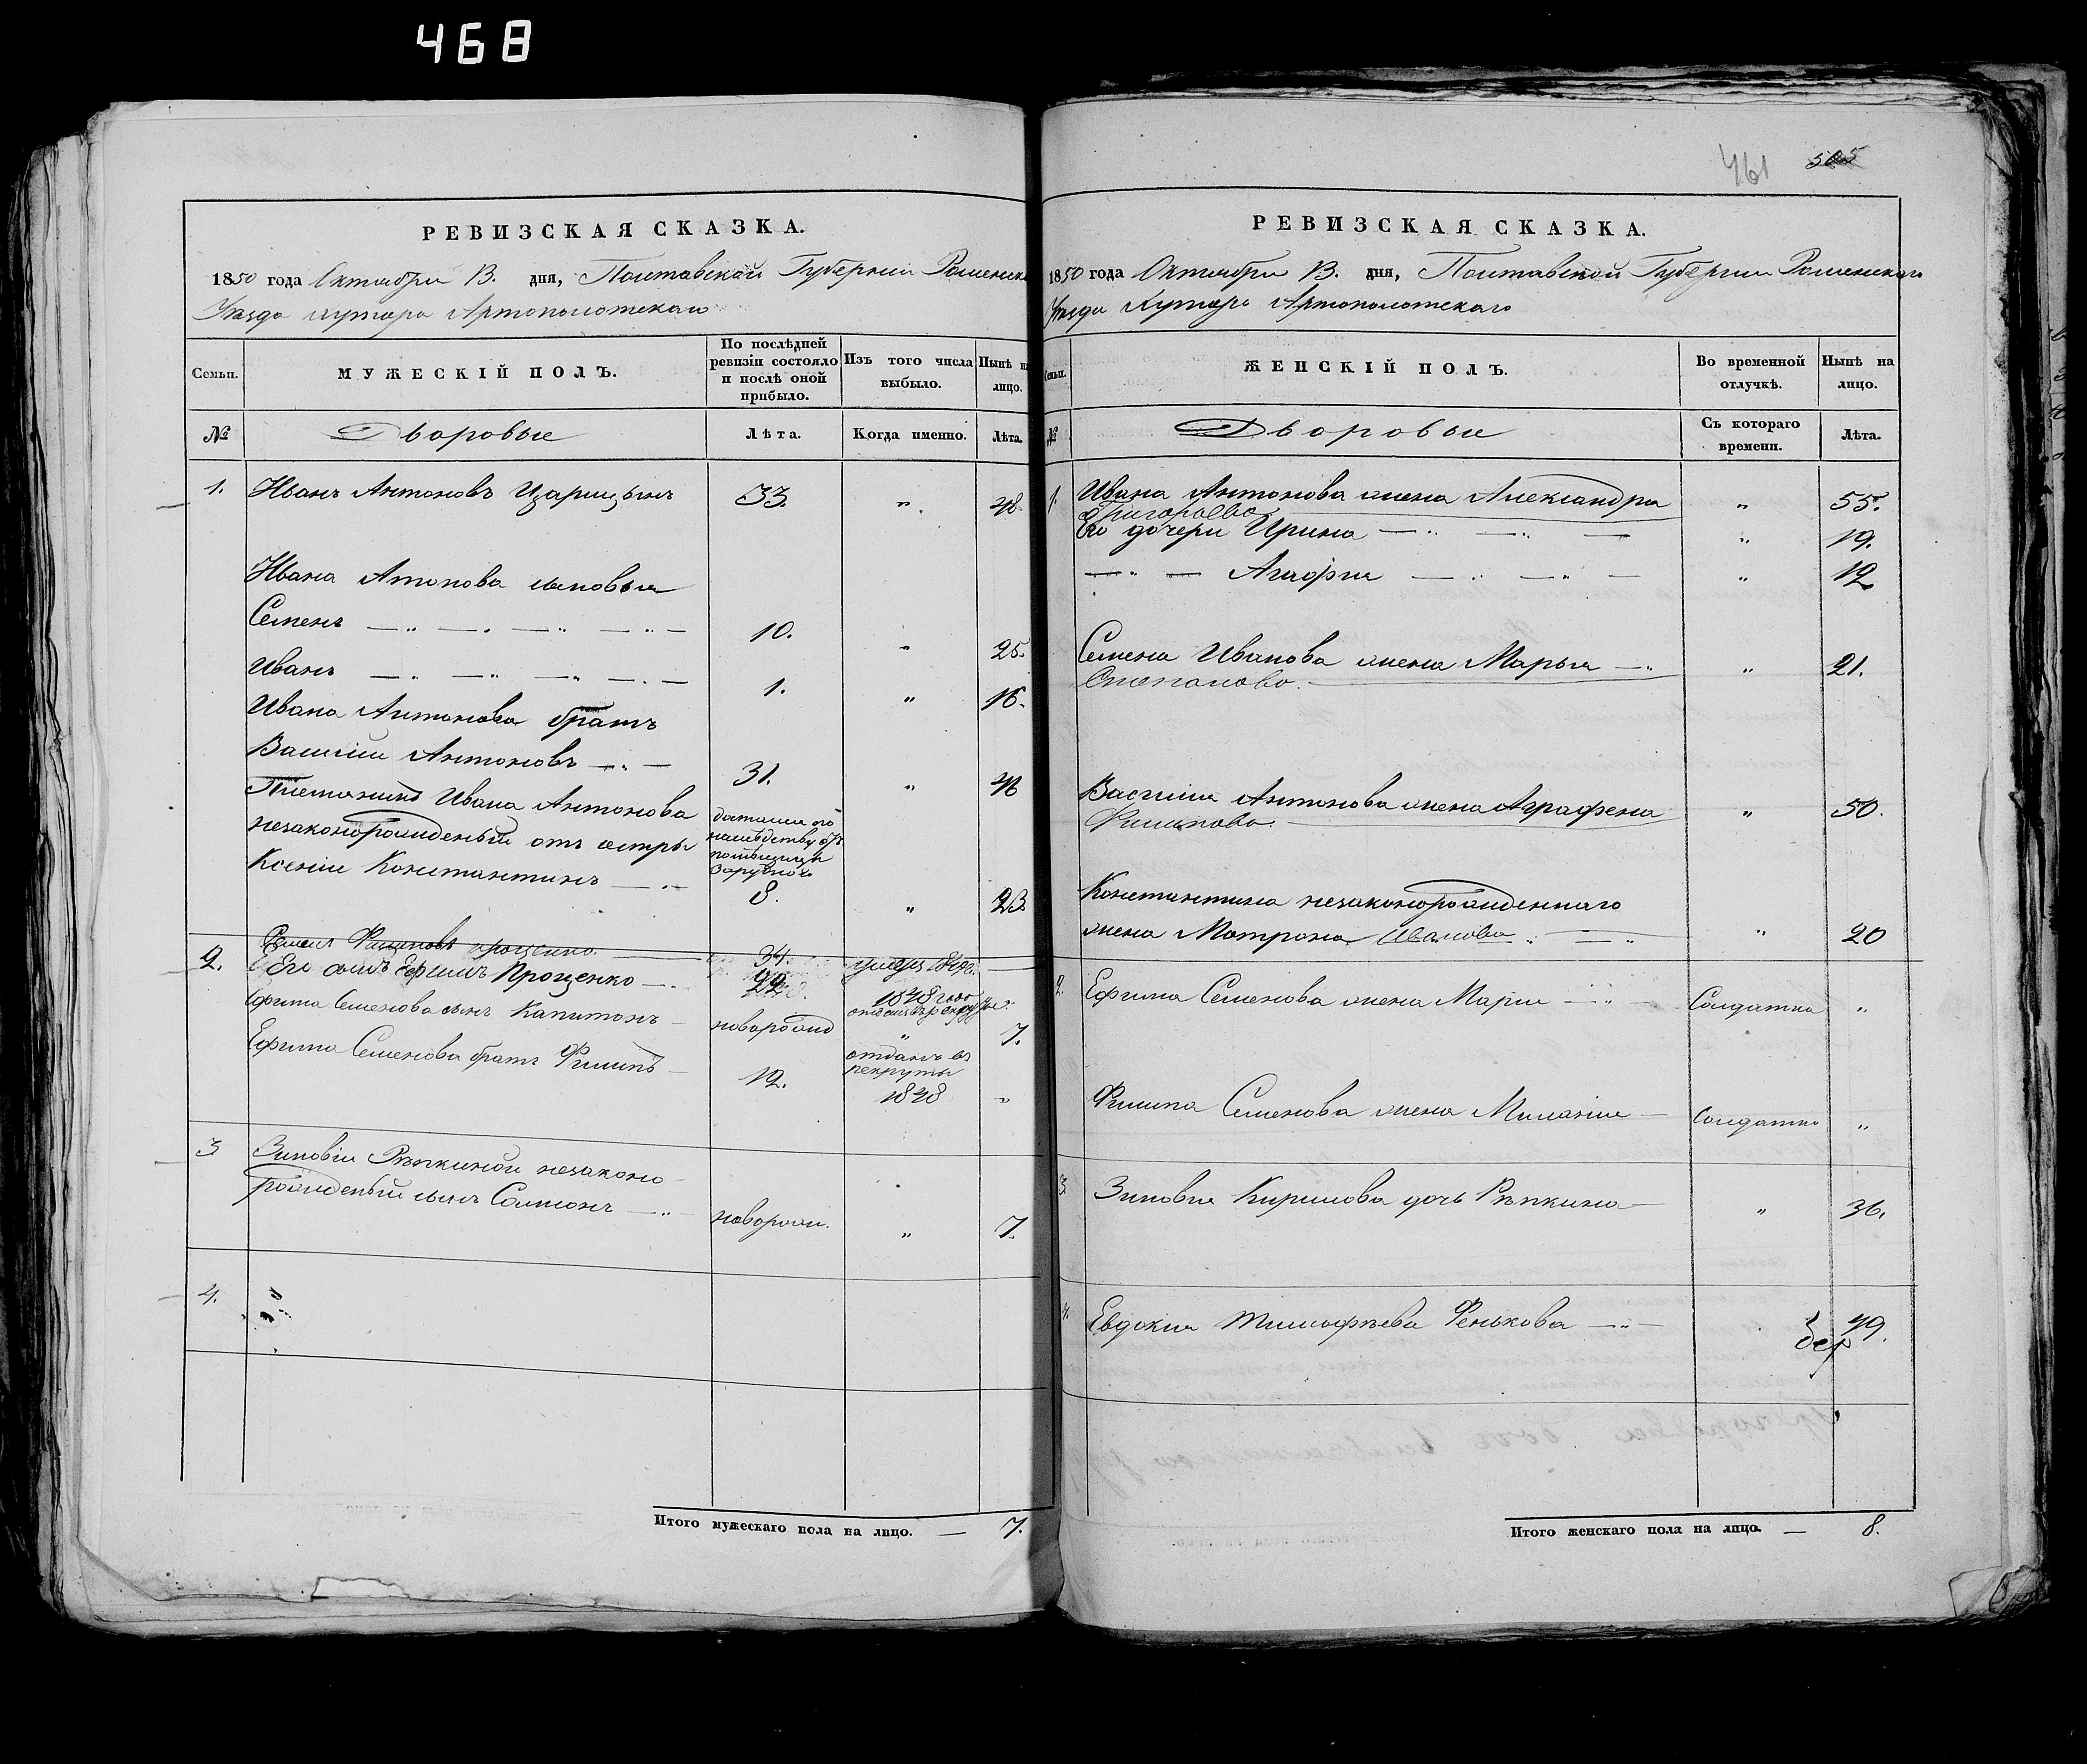 468
461 505
РЕВИЗСКАЯ СКАЗКА.
1850 года Октября 13. дня, Полтавской Губернiи Роменска
Уѣзда хутора Артополотскаго
Семьи. МУЖЕСКIЙ ПОЛЪ. По послѣдней ревизiи состояло и послѣ оной прибыло. Изъ того числа выбыло. Нынѣ на лицо.
№ Дворовые Лѣта. Когда именно. Лѣта.
1. Иванъ Антоновъ Царицынъ 33. " 48
Ивана Антонова сыновья
Семенъ 10. " 25.
Иванъ 1. " 16.
Ивана Антонова братъ
Василiй Антоновъ 31. " 46
Племяникъ Ивана Антонова
незаконорожденый отъ сестры
Ксенiи Константинъ
достался по
наслѣдству отъ
помѣщика
8. " 23
Семенъ Филиповъ Проценко 34. умеръ
2. Его сынъ Ефимъ Проценко 22 1848 года
Ефима Семенова сынъ Капитонъ новорожд " 7.
Ефима Семенова братъ Филипъ 12. отданъ въ
рекруты
1848 "
3 Зиновiи Рѣпкиной незаконо
рожденый сынъ новорож. " 7.
4.
Итого мужескаго пола на лицо. — 7.
РЕВИЗСКАЯ СКАЗКА.
1850 года Октября 13. дня, Полтавской Губернiи Роменскаго
Уѣзда Хутора Артополотскаго
Семьи. ЖЕНСКIЙ ПОЛЪ. Во временной отлучкѣ. Нынѣ на лицо.
№ Дворовые Съ котораго времени. Лѣта.
1. Ивана Антонова жена Александра " 55.
Григорьева
Его дочери Ирина " 19.
Агафiя " 12
Семена Иванова жена Марья " 21.
Степанова.
Василiя Антонова жена Аграфена " 50.
Филипова.
Константина незаконорожденнаго
жена Матрона Иванова " 20
2. Ефима Семенова жена Марiя Солдатка "
Филипа Семенова жена Миланiя Солдатка "
3. Зиновiя Кирилова дочь Рѣпкина " 36.
4. Евдокiя Тимофѣева Фенькова 49.
Итого женскаго пола на лицо. — 8.